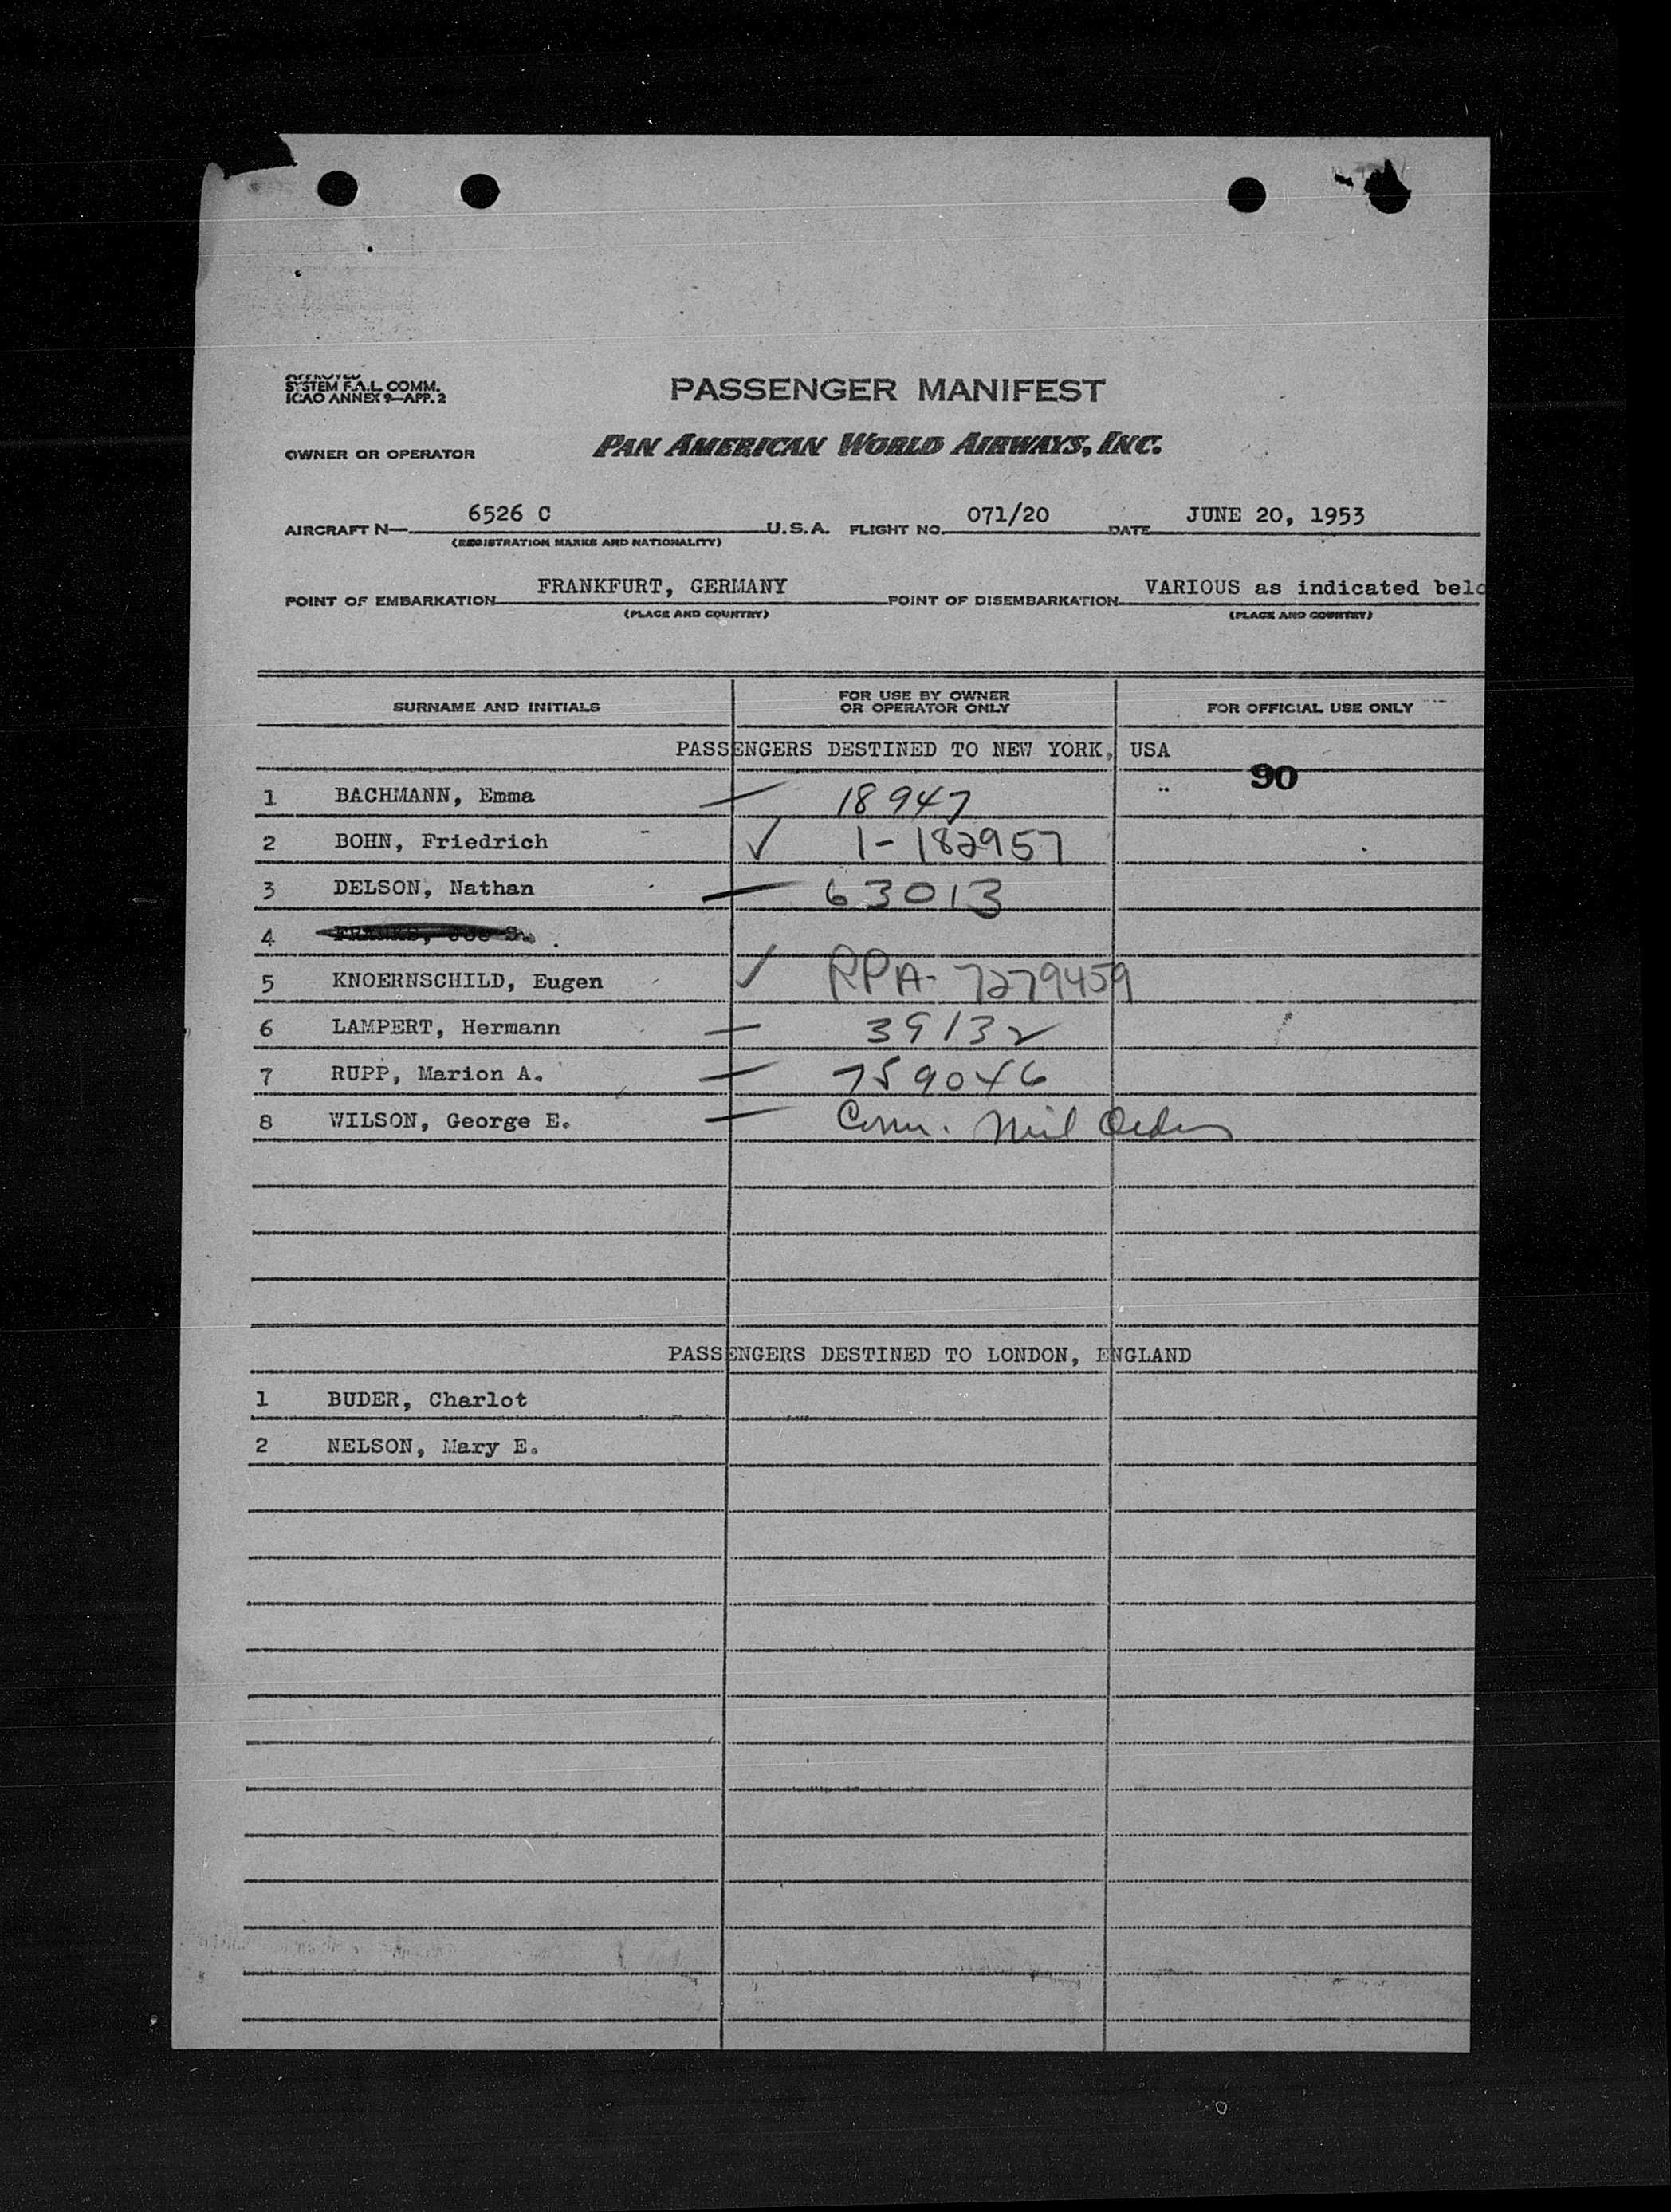 APPROVED
SYSTEM F.A.L. COMM.
ICAO ANNEX 9—APP. 2
PASSENGER MANIFEST
OWNER OR OPERATOR PAN AMERICAN WORLD AIRWAYS, INC.
AIRCRAFT N— 6526 C U.S.A. FLIGHT NO. 071/20 DATE JUNE 20, 1953
(REGISTRATION MARKS AND NATIONALITY)
POINT OF EMBARKATION FRANKFURT, GERMANY POINT OF DISEMBARKATION VARIOUS as indicated belo
(PLACE AND COUNTRY) (PLACE AND COUNTRY)
SURNAME AND INITIALS FOR USE BY OWNER OR OPERATOR ONLY FOR OFFICIAL USE ONLY
PASSENGERS DESTINED TO NEW YORK, USA
90
1 BACHMANN, Emma — 18947
2 BOHN, Friedrich ✓ 1-182957
3 DELSON, Nathan — 63013
4
5 KNOERNSCHILD, Eugen ✓ RPA-7279459
6 LAMPERT, Hermann — 39132
7 RUPP, Marion A. — 759046
8 WILSON, George E. — Comm. Mil Orders
PASSENGERS DESTINED TO LONDON, ENGLAND
1 BUDER, Charlot
2 NELSON, Mary E.